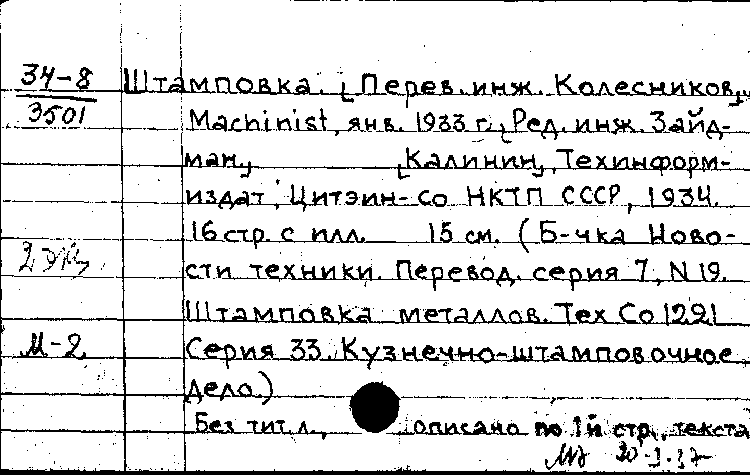 34-8
3501
Штамповка. [Перев. инж. Колесников],
Machinist, янв. 1933 г., [Ред. инж. Зайд-
ман] [Калинин], Техинформ-
издат, Цитэин-Со НКТП СССР, 1934.
16 стр. с илл. 15 см. (Б-чка Ново-
2 экз.
сти техники. Перевод. серия 7, N 19.
Штамповка металлов. Тех Со 1221
М-2
Серия 33. Кузнечно-штамповочное
дело.)
Без тит. л., описано по 1й стр. текста